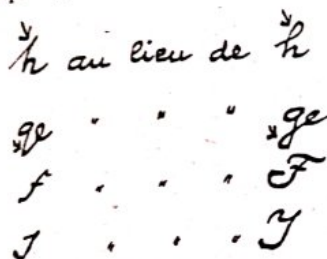 h au lieu de h
ge " " " ge
f " " " F
J " " " Y